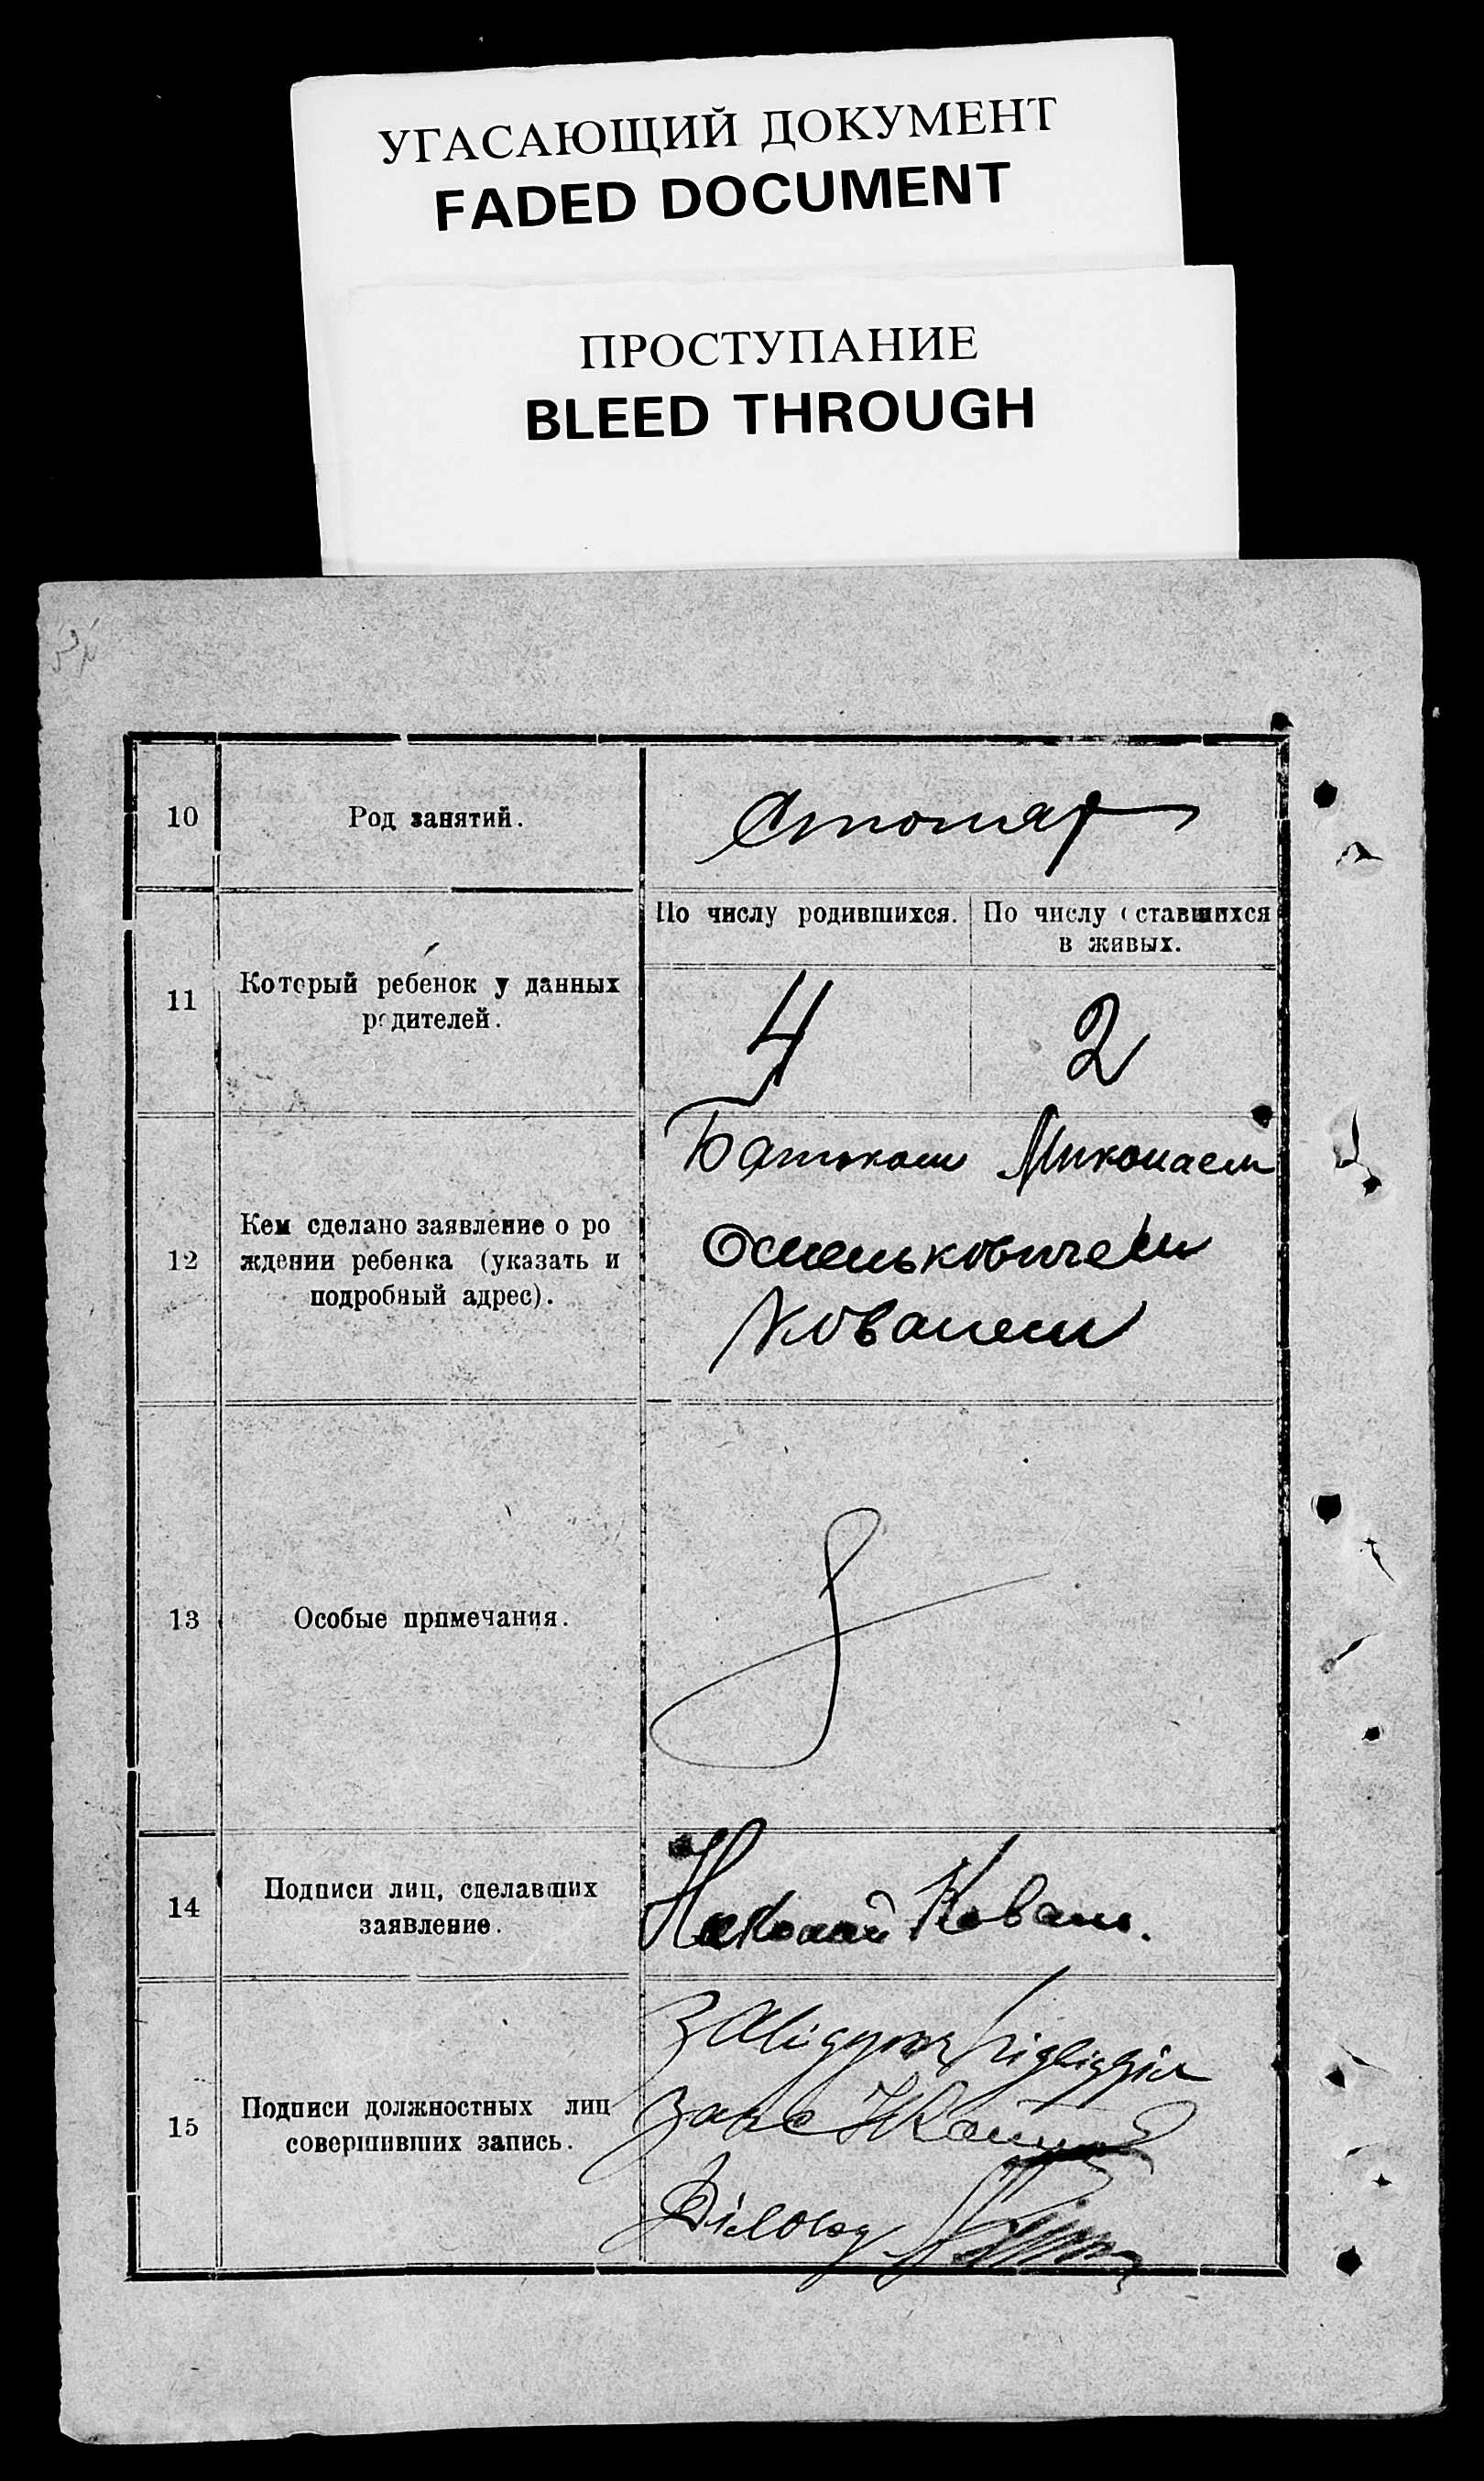 УГАСАЮЩИЙ ДОКУМЕНТ
FADED DOCUMENT
ПРОСТУПАНИЕ
BLEED THROUGH
10
Род занятий.
Столяр
11
Который ребенок у данных
родителей.
По числу родившихся.
По числу оставшихся
в живых.
4
2
12
Кем сделано заявление о ро
ждении ребенка (указать и
подробный адрес).
Батьком Миколаем
Омельковичем
Ковалем
13
Особые примечания.
14
Подписи лиц, сделавших
заявление.
Николай Коваль.
15
Подписи должностных лиц
совершивших запись.
Завідуюч
Загс
Діловод